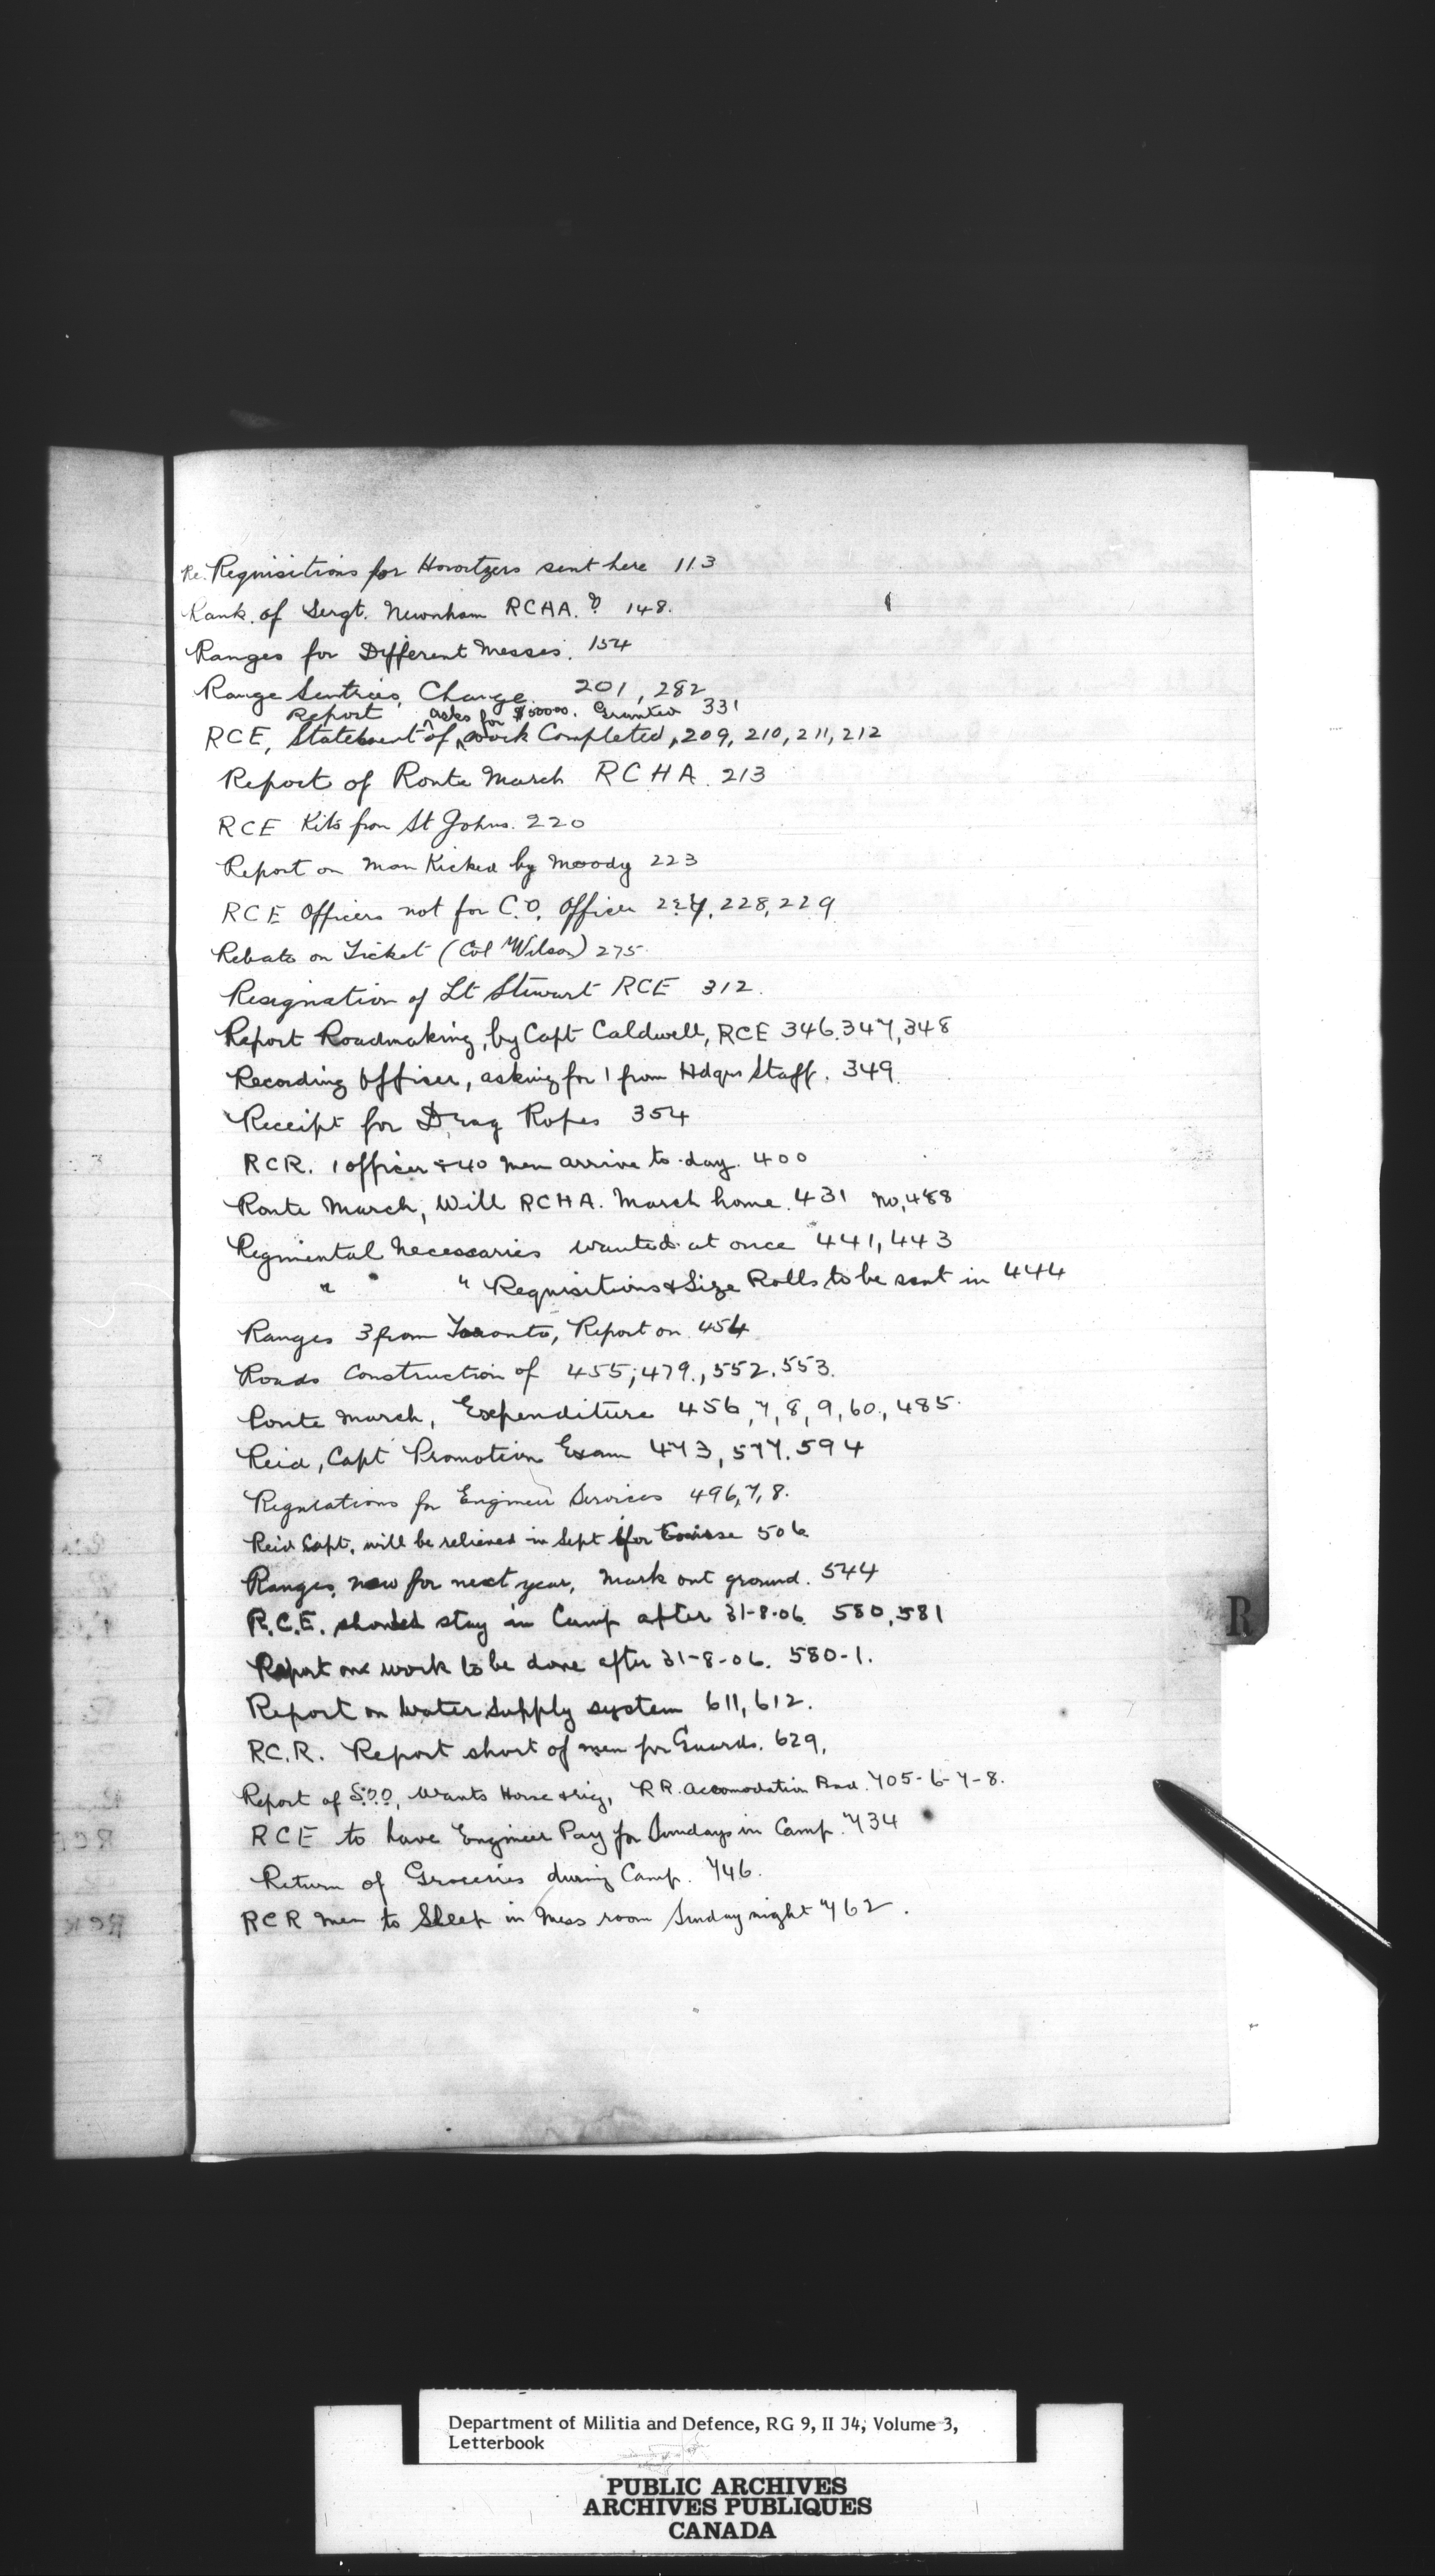 Re. Requisitions for Howitzers sent here 113
Rank of Sergt. Newnham RCHA. ? 148.
Ranges for Different Messes. 154
Range Sentries, Change 201, 282
Report asks for Granted 331
RCE, Statement of work Completed, 209, 210, 211, 212
Report of Route March RCHA. 213
RCE Kits from St Johns. 220
Report on Man Kicked by Moody 223
RCE Officers not for C.O. Office 227, 228, 229
Rebate on Ticket (Col Wilson) 275
Resignation of Lt Stewart RCE 312.
Report Roadmaking, by Capt Caldwell, RCE 346. 347, 348
Recording Officer, asking for 1 from Hdqrs Staff. 349.
Receipt for Drag Ropes 354
RCR. 1 officer & 40 men arrive to-day. 400
Route March, Will RCHA. March home. 431 no, 488
Regmental Necessaries wanted at once 441, 443
" " Requisitions & Size Rolls to be sent in 444
Ranges 3 from Toronto, Report on 454
Roads Construction of 455, 479., 552. 553.
Route March, Expenditure 456, 7, 8, 9, 60., 485.
Reid, Capt Promotion Exam 473, 577. 594
Regulations for Engineer Services 496, 7, 8.
Reid Capt. will be relieved in Sept for Course 506
Ranges, new for next year, Mark out ground. 544
R.C.E. should stay in Camp after 31-8-06 580, 581
Report on work to be done after 31-8-06. 580-1.
Report on Water Supply system 611, 612.
RC.R. Report short of men for Guards. 629,
Report of S.O.O, Wants Horse & rig, RR. Accomodation Bad. 705-6-7-8.
RCE to have Engineer Pay for Sundays in Camp. 734
Return of Groceries during Camp. 746.
RCR Men to Sleep in Mess room Sunday night 762.
R
Department of Militia and Defence, RG 9, II J4, Volume 3,
Letterbook
PUBLIC ARCHIVES
ARCHIVES PUBLIQUES
CANADA